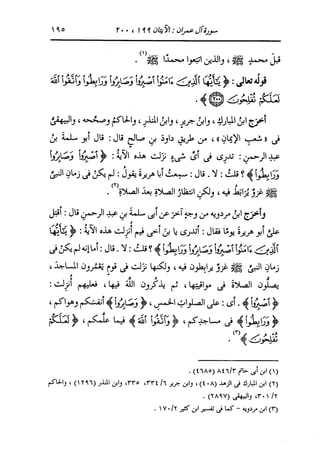 سورة آل عمران : الآيتان ١٩٩ ، ٢٠٠ ١٩٥
قبل محمدٍ ﷺ ، والذين اتبعوا محمدًا ﷺ (١) .
قولُه تعالى : ﴿ يَٰٓأَيُّهَا ٱلَّذِينَ ءَامَنُوا۟ ٱصْبِرُوا۟ وَصَابِرُوا۟ وَرَابِطُوا۟ وَٱتَّقُوا۟ ٱللَّهَ
لَعَلَّكُمْ تُفْلِحُونَ ﴿٢٠٠﴾ ﴾ .
أخرَج ابنُ المباركِ ، وابنُ جريرٍ ، وابنُ المنذرِ ، والحاكمُ وصحَّحه ، والبيهقىُّ
فى « شعبِ الإيمانِ » ، من طريقِ داودَ بنِ صالحٍ قال : قال أبو سلمةَ بنُ
عبدِ الرحمنِ : تدرِى فى أىِّ شىءٍ نزلت هذه الآيةُ : ﴿ ٱصْبِرُوا۟ وَصَابِرُوا۟
وَرَابِطُوا۟ ﴾ ؟ قلتُ : لا . قال : سمِعتُ أبا هريرةَ يقولُ : لم يكنْ فى زمانِ النبىِّ
ﷺ غزوٌ يُرابَطُ فيه ، ولكنِ انتظارُ الصلاةِ بعدَ الصلاةِ (٢) .
وأخرَج ابنُ مردويه من وجهٍ آخرَ عن أبى سلمةَ بنِ عبدِ الرحمنِ قال : أقبَل
علىَّ أبو هريرةَ يومًا فقال : أتدرِى يا بنَ أخى فيم أُنزِلت هذه الآيةُ : ﴿ يَٰٓأَيُّهَا
ٱلَّذِينَ ءَامَنُوا۟ ٱصْبِرُوا۟ وَصَابِرُوا۟ وَرَابِطُوا۟ ﴾ ؟ قلتُ : لا . قال : أما إنه لم يكنْ فى
زمانِ النبىِّ ﷺ غزوٌ يرابِطون فيه ، ولكنها نزَلت فى قومٍ يَعْمُرون المساجدَ ،
يصلُّون الصلاةَ فى مواقيتِها ، ثم يذكُرون اللَّهَ فيها ، فعليهم أُنزِلت :
﴿ ٱصْبِرُوا۟ ﴾ . أى : على الصلواتِ الخمسِ ، ﴿ وَصَابِرُوا۟ ﴾ أنفسَكم وهواكم ،
﴿ وَرَابِطُوا۟ ﴾ فى مساجدِكم ، ﴿ وَٱتَّقُوا۟ ٱللَّهَ ﴾ فيما علَّمكم ، ﴿ لَعَلَّكُمْ
تُفْلِحُونَ ﴾ (٣) .
(١) ابن أبى حاتم ٨٤٦/٣ (٤٦٨٥) .
(٢) ابن المبارك فى الزهد (٤٠٨) ، وابن جرير ٣٣٤/٦ ، ٣٣٥ ، وابن المنذر (١٢٩٦) ، والحاكم
٣٠١/٢ ، والبيهقى (٢٨٩٧) .
(٣) ابن مردويه - كما فى تفسير ابن كثير ١٧٠/٢ .